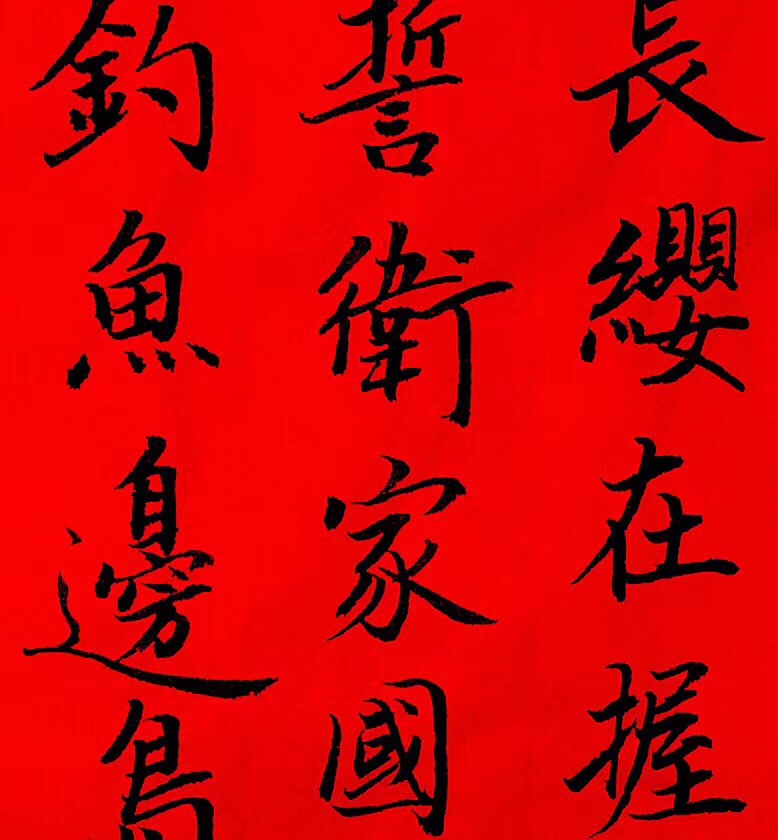 長纓在握
誓衛家國
釣魚邊島